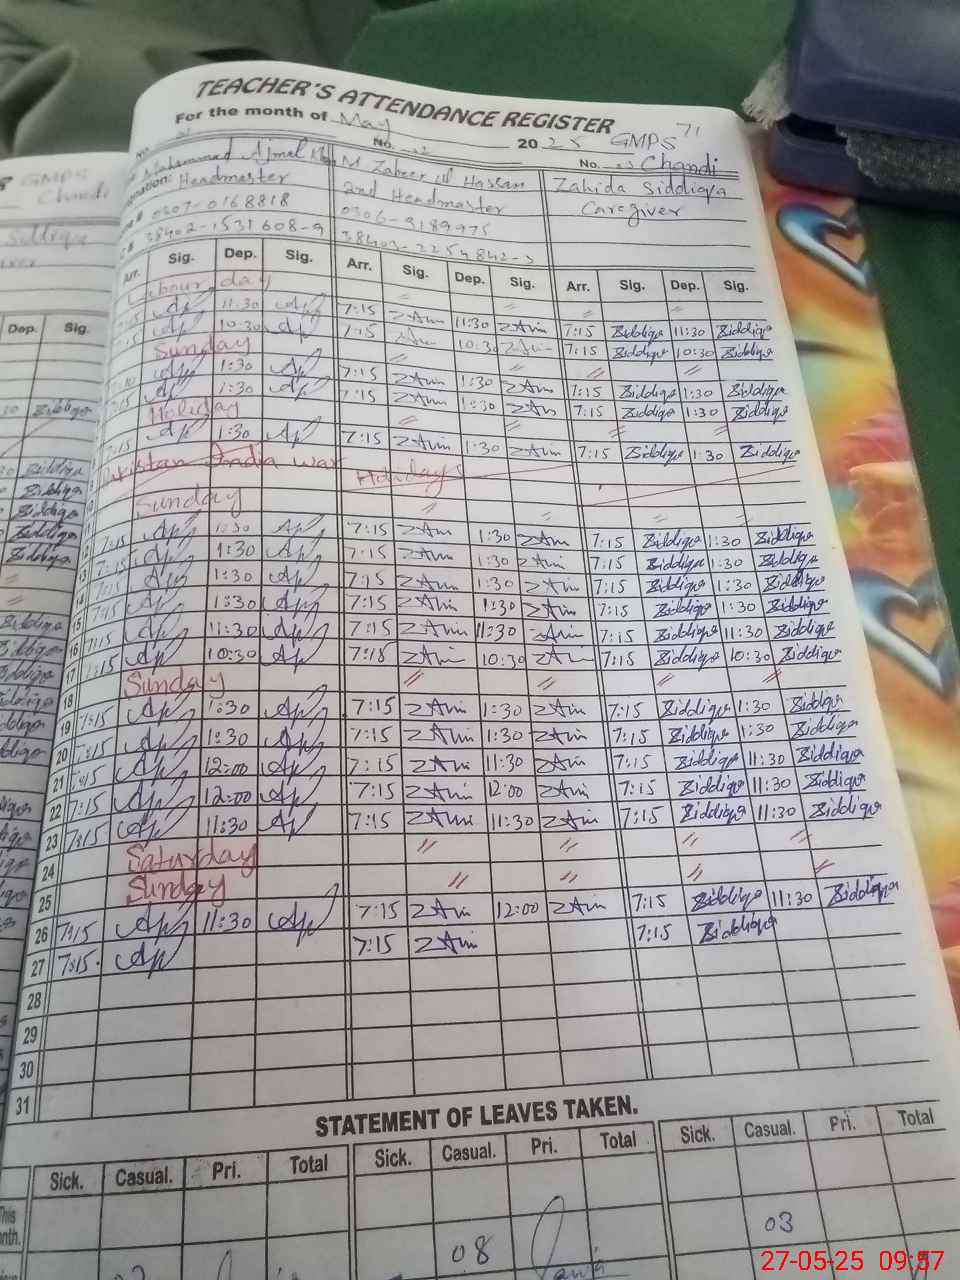 TEACHER'S ATTENDANCE REGISTER
For the month of May 2025 GMPS 71
No. No. No. Chandi
GMPS
Chandi
Muhammad Ajmal M. Zaheer ul Hassan Zahida Siddiqa
Headmaster 2nd Headmaster Caregiver
0307-0168818 0306-9189975
38402-1531608-9 38403-2254842-3
Arr. Sig. Dep. Sig. Arr. Sig. Dep. Sig. Arr. Sig. Dep. Sig.
Dep. Sig.
Labour day
7:15 11:30 7:15 ZAin 11:30 ZAin 7:15 Siddiqa 11:30 Siddiqa
7:15 10:30 7:15 ZAin 10:30 ZAin 7:15 Siddiqa 10:30 Siddiqa
Sunday
1:30 7:15 ZAin 1:30 ZAin 7:15 Siddiqa 1:30 Siddiqa
7:15 1:30 7:15 ZAin 1:30 ZAin 7:15 Siddiqa 1:30 Siddiqa
Holiday
7:15 1:30 7:15 ZAin 1:30 ZAin 7:15 Siddiqa 1:30 Siddiqa
Pakistan India war Holidays
10 Sunday
7:15 1:30 7:15 ZAin 1:30 ZAin 7:15 Siddiqa 1:30 Siddiqa
7:15 1:30 7:15 ZAin 1:30 ZAin 7:15 Siddiqa 1:30 Siddiqa
13 7:15 1:30 7:15 ZAin 1:30 ZAin 7:15 Siddiqa 1:30 Siddiqa
14 7:15 1:30 7:15 ZAin 1:30 ZAin 7:15 Siddiqa 1:30 Siddiqa
15 7:15 11:30 7:15 ZAin 11:30 ZAin 7:15 Siddiqa 11:30 Siddiqa
16 7:15 10:30 7:15 ZAin 10:30 ZAin 7:15 Siddiqa 10:30 Siddiqa
17 Sunday
18 7:15 1:30 7:15 ZAin 1:30 ZAin 7:15 Siddiqa 1:30 Siddiqa
19 7:15 1:30 7:15 ZAin 1:30 ZAin 7:15 Siddiqa 1:30 Siddiqa
20 7:15 12:00 7:15 ZAin 11:30 ZAin 7:15 Siddiqa 11:30 Siddiqa
21 7:15 12:00 7:15 ZAin 12:00 ZAin 7:15 Siddiqa 11:30 Siddiqa
22 7:15 11:30 7:15 ZAin 11:30 ZAin 7:15 Siddiqa 11:30 Siddiqa
23
24 Saturday
25 Sunday
26 7:15 11:30 7:15 ZAin 12:00 ZAin 7:15 Siddiqa 11:30 Siddiqa
27 7:15 7:15 ZAin 7:15 Siddiqa
28
29
30
31
STATEMENT OF LEAVES TAKEN.
Sick. Casual. Pri. Total Sick. Casual. Pri. Total Sick. Casual. Pri. Total
This
08 03
27-05-25 09:57